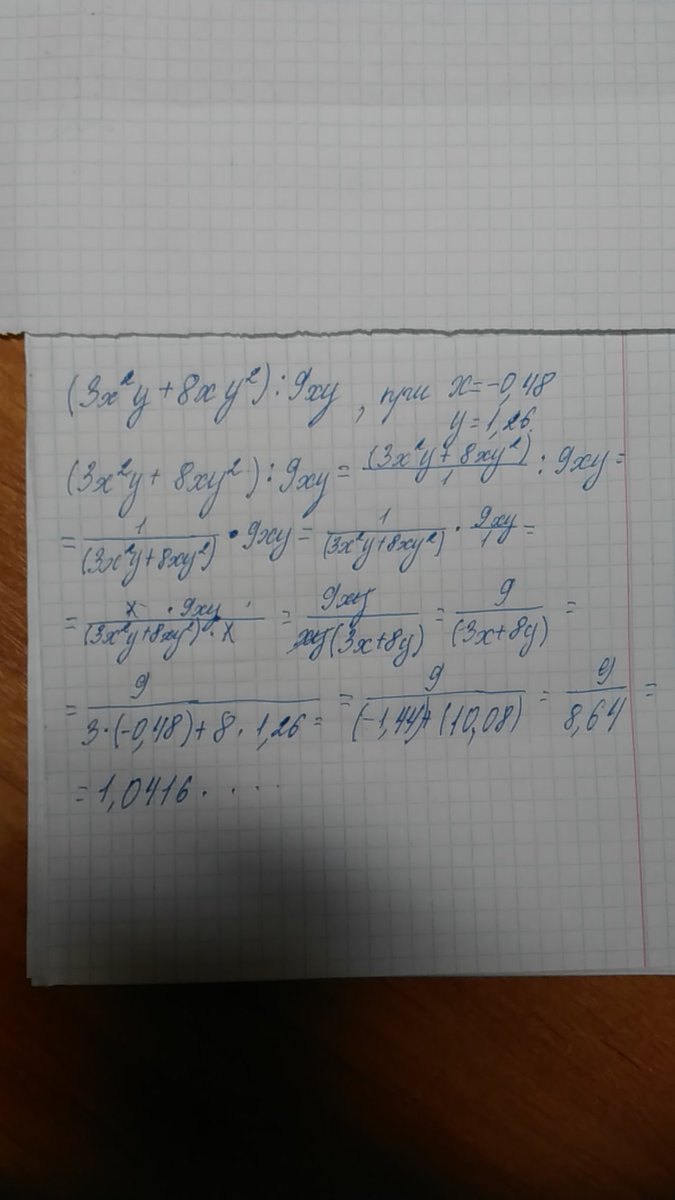 (3x²y + 8xy²) : 9xy , при x = -0,48
y = 1,26.
(3x²y + 8xy²) : 9xy = (3x²y + 8xy²)/1 : 9xy =
= 1/(3x²y + 8xy²) • 9xy = 1/(3x²y + 8xy²) · 9xy/1 =
= x · 9xy/(3x²y + 8xy²) · x = 9xy/xy(3x + 8y) = 9/(3x + 8y) =
= 9/3·(-0,48) + 8 · 1,26 = = 9/(-1,44) + (10,08) = 9/8,64 =
= 1,0416 . . . . .